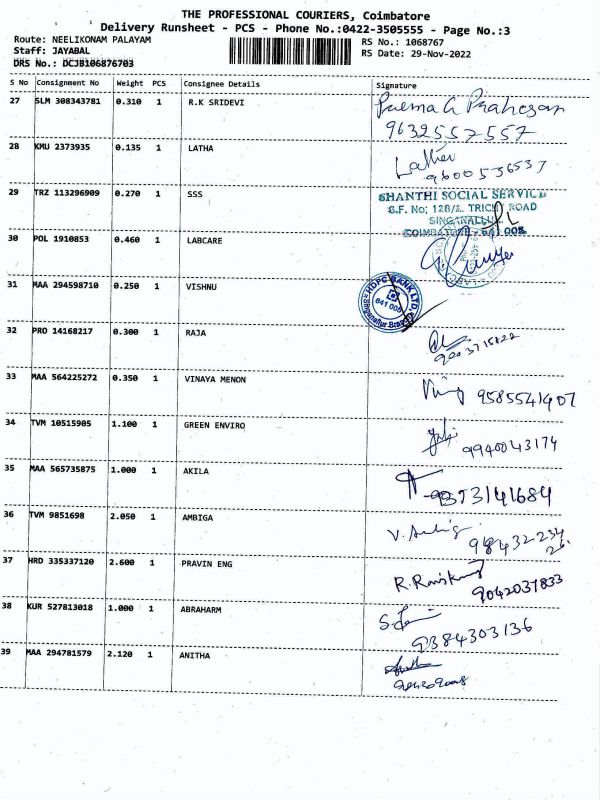 THE PROFESSIONAL COURIERS, Coimbatore
Delivery Runsheet - PCS - Phone No.:0422-3505555 - Page No.:3
Route: NEELIKONAM PALAYAM
RS No.: 1068767
Staff: JAYABAL
RS Date: 29-Nov-2022
DRS No.: DCJB106876703
S No Consignment No Weight PCS Consignee Details Signature
27 SLM 308343781 0.310 1 R.K SRIDEVI
9632557557
28 KMU 2373935 0.135 1 LATHA
9600536537
29 TRZ 113296909 0.270 1 SSS
SHANTHI SOCIAL SERVICE
S.F. No; 128/2, TRICHY ROAD
SINGANALLUR
COIMBATORE - 641 005
30 POL 1910853 0.460 1 LABCARE
31 MAA 294598710 0.250 1 VISHNU
HDFC BANK LTD.
641 005
Singanallur Branch
32 PRO 14168217 0.300 1 RAJA
33 MAA 564225272 0.350 1 VINAYA MENON
9585541907
34 TVM 10515905 1.100 1 GREEN ENVIRO
9940043174
35 MAA 565735875 1.000 1 AKILA
36 TVM 9851698 2.050 1 AMBIGA
98432-234
26.
37 HRD 335337120 2.600 1 PRAVIN ENG
9042037833
38 KUR 527813018 1.000 1 ABRAHARM
9384303136
39 MAA 294781579 2.120 1 ANITHA